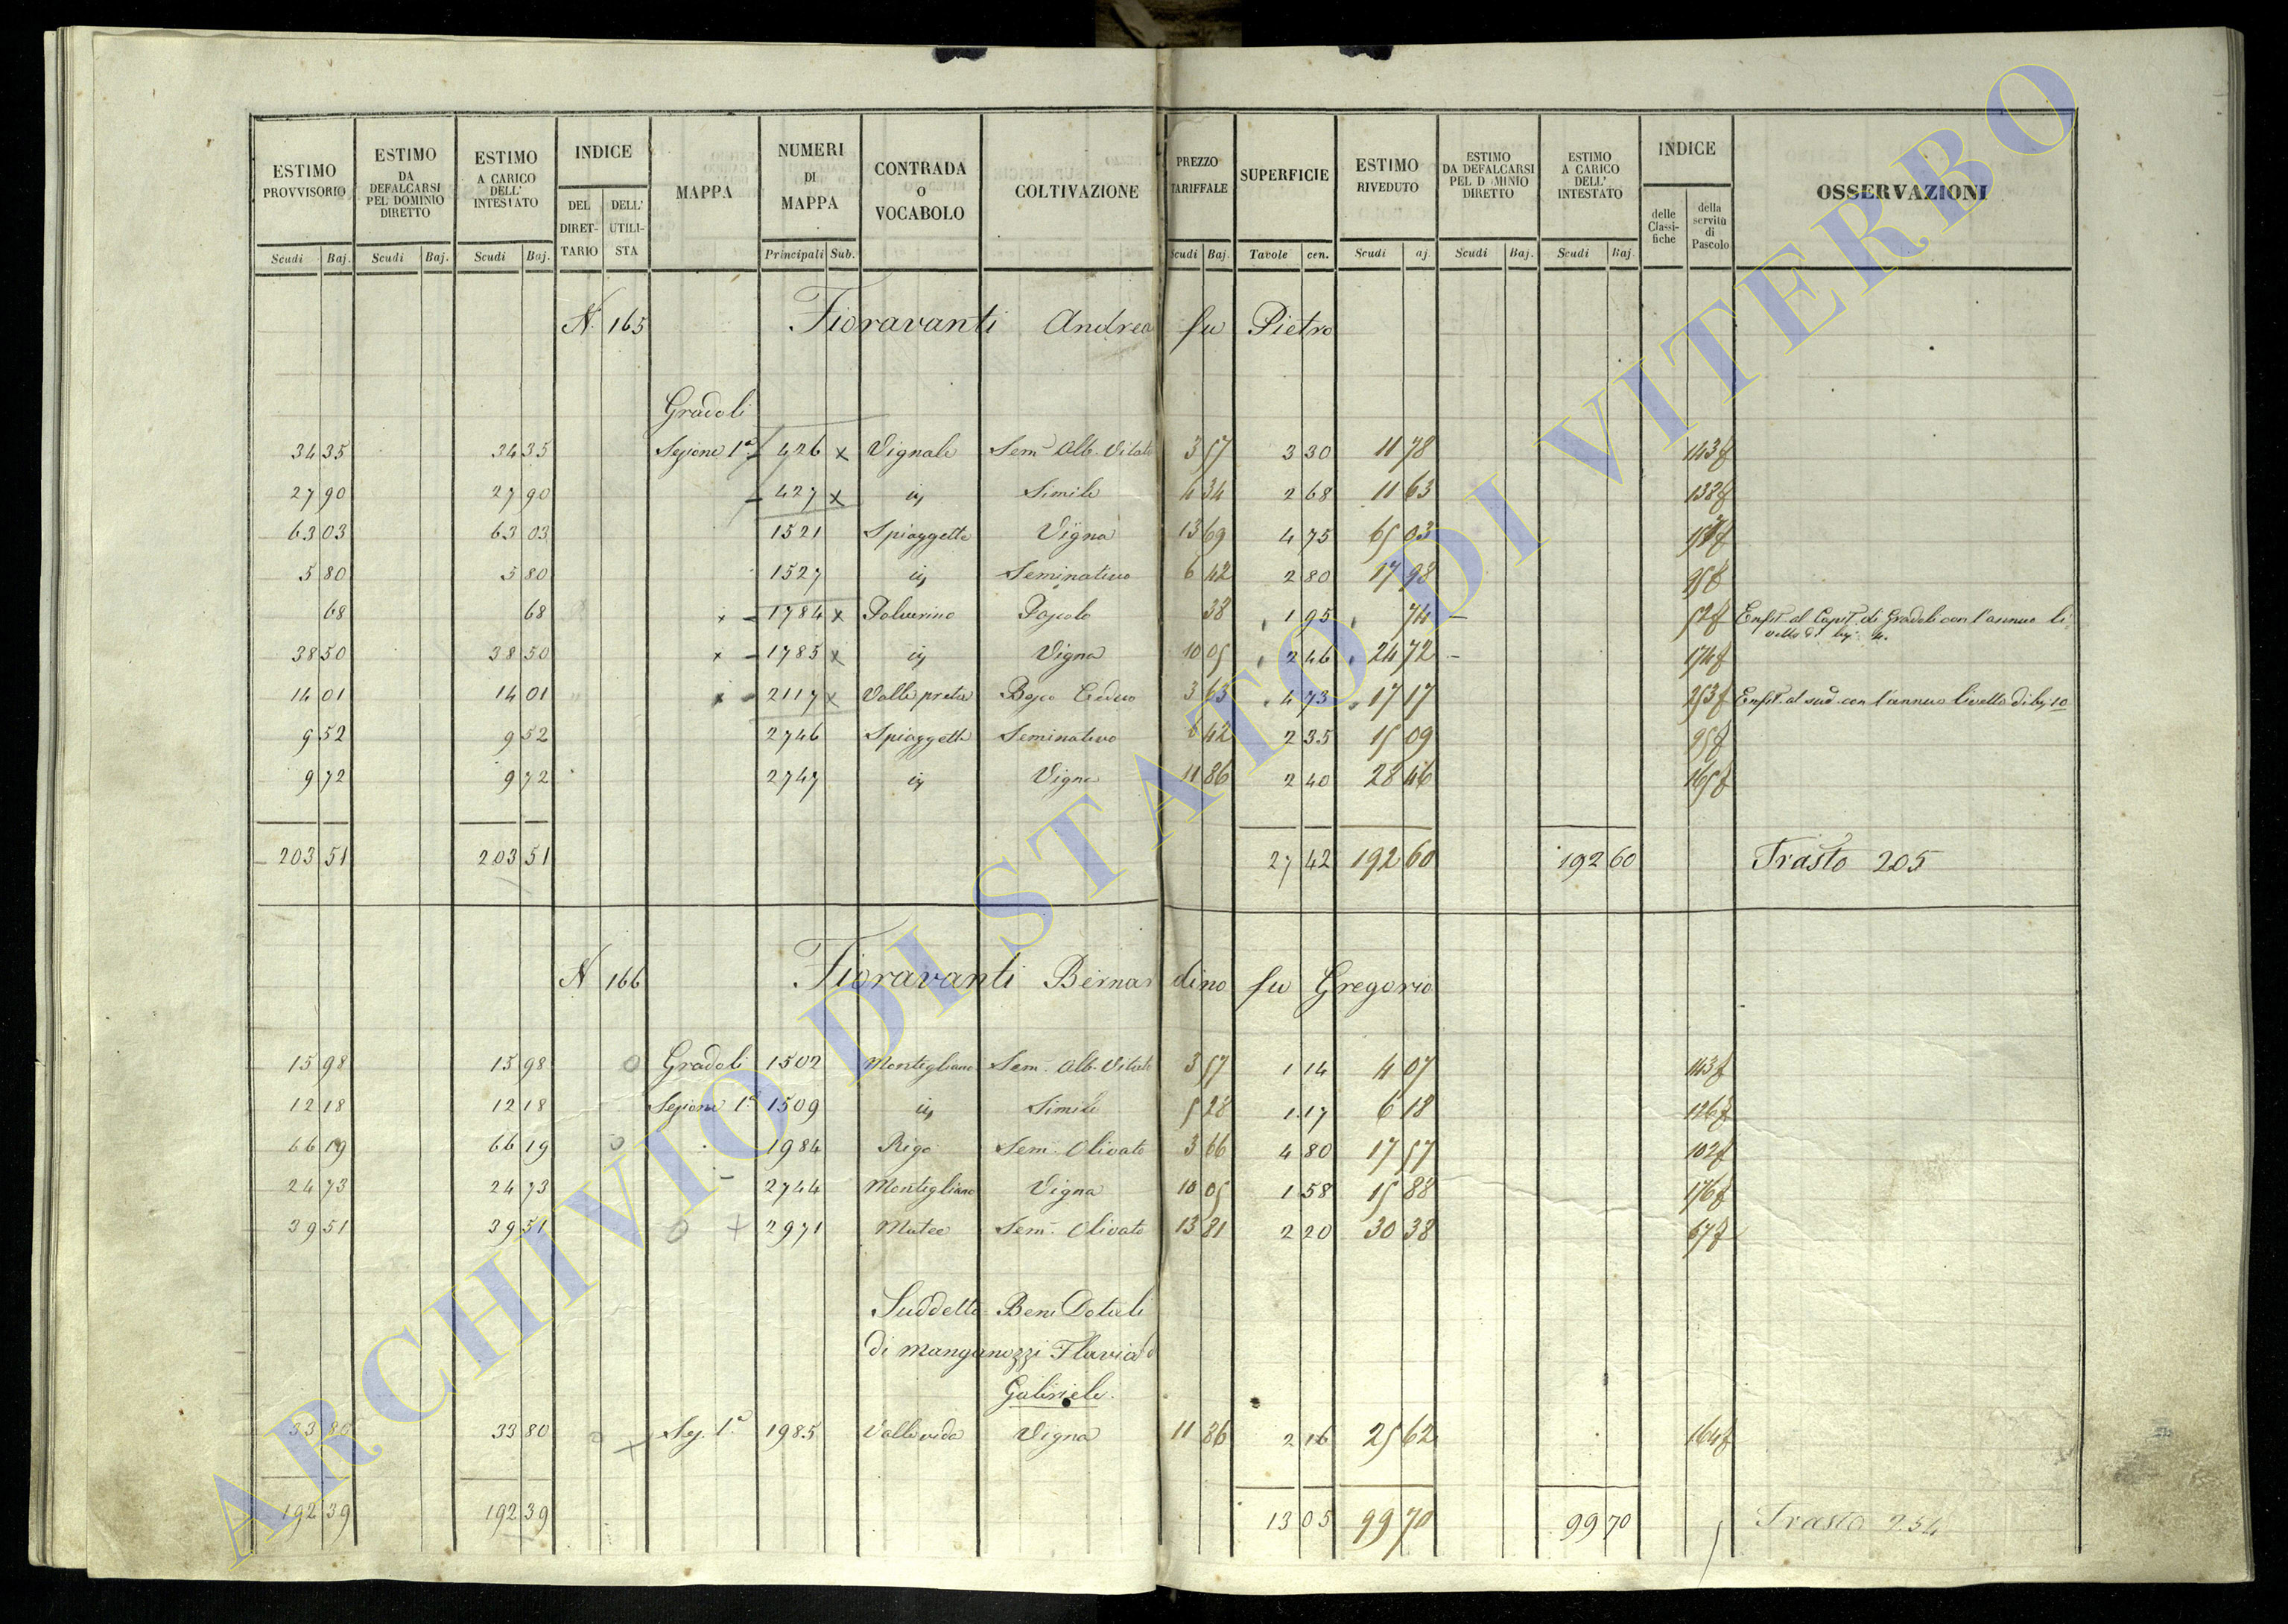 ESTIMO PROVVISORIO ESTIMO DA DEFALCARSI PEL DOMINIO DIRETTO ESTIMO A CARICO DELL' INTESTATO INDICE MAPPA NUMERI DI MAPPA CONTRADA O VOCABOLO COLTIVAZIONE PREZZO TARIFFALE SUPERFICIE ESTIMO RIVEDUTO ESTIMO DA DEFALCARSI PEL DOMINIO DIRETTO ESTIMO A CARICO DELL' INTESTATO INDICE OSSERVAZIONI
DEL DIRET- TARIO DELL' UTILI- STA delle Classi- fiche della servitù di Pascolo
Scudi Baj. Scudi Baj. Scudi Baj. Principali Sub. Scudi Baj. Tavole cen. Scudi aj. Scudi Baj. Scudi Baj.
N. 165 Fioravanti Andrea fu Pietro
Gradoli
34 35 34 35 Sezione 1ª 426 x Vignale Sem. Alb. Vitato 3 57 3 30 11 78 143 f
27 90 27 90 427 x id Simile 4 34 2 68 11 63 138 f
63 03 63 03 1521 Spiaggette Vigna 13 69 4 75 65 03
5 80 5 80 1527 id Seminativo 6 42 2 80 17 98 95 f
68 68 x 1784 x Polverino Pascolo 38 1 95 74 52 f Enfit. al Capit. di Gradoli con l'annuo li
38 50 38 50 x 1785 x id Vigna 10 05 2 46 24 72 174 f
14 01 14 01 x 2117 x Valle preta Bosco Ceduo 3 63 4 73 17 17 253 f Enfit. al sud. con l'annuo livello di bj 10
9 52 9 52 2746 Spiaggette Seminativo 6 42 2 35 15 09 95 f
9 72 9 72 2747 id Vigna 11 86 2 40 28 46 165 f
203 51 203 51 27 42 192 60 192 60 Trasto 205
N 166 Fioravanti Bernardino fu Gregorio
15 98 15 98 Gradoli 1502 Montigliano Sem. Alb. Vitato 3 57 1 14 4 07 143 f
12 18 12 18 Sezione 1ª 1509 id Simile 5 28 1 17 6 18 126 f
66 19 66 19 1984 Rigo Sem. Olivato 3 66 4 80 17 57 102 f
24 73 24 73 2744 Montigliano Vigna 10 05 1 58 15 88 176 f
39 51 39 51 2971 Sem. Olivato 13 81 2 20 30 38 67 f
Suddetto Beni Dotali
di Manganozzi Flavia
Gabriele.
33 80 33 80 Sez. 1ª 1985 Vallevida Vigna 11 86 2 16 25 62 164 f
192 39 192 39 13 05 99 70 99 70 Trasto 254
ARCHIVIO DI STATO DI VITERBO